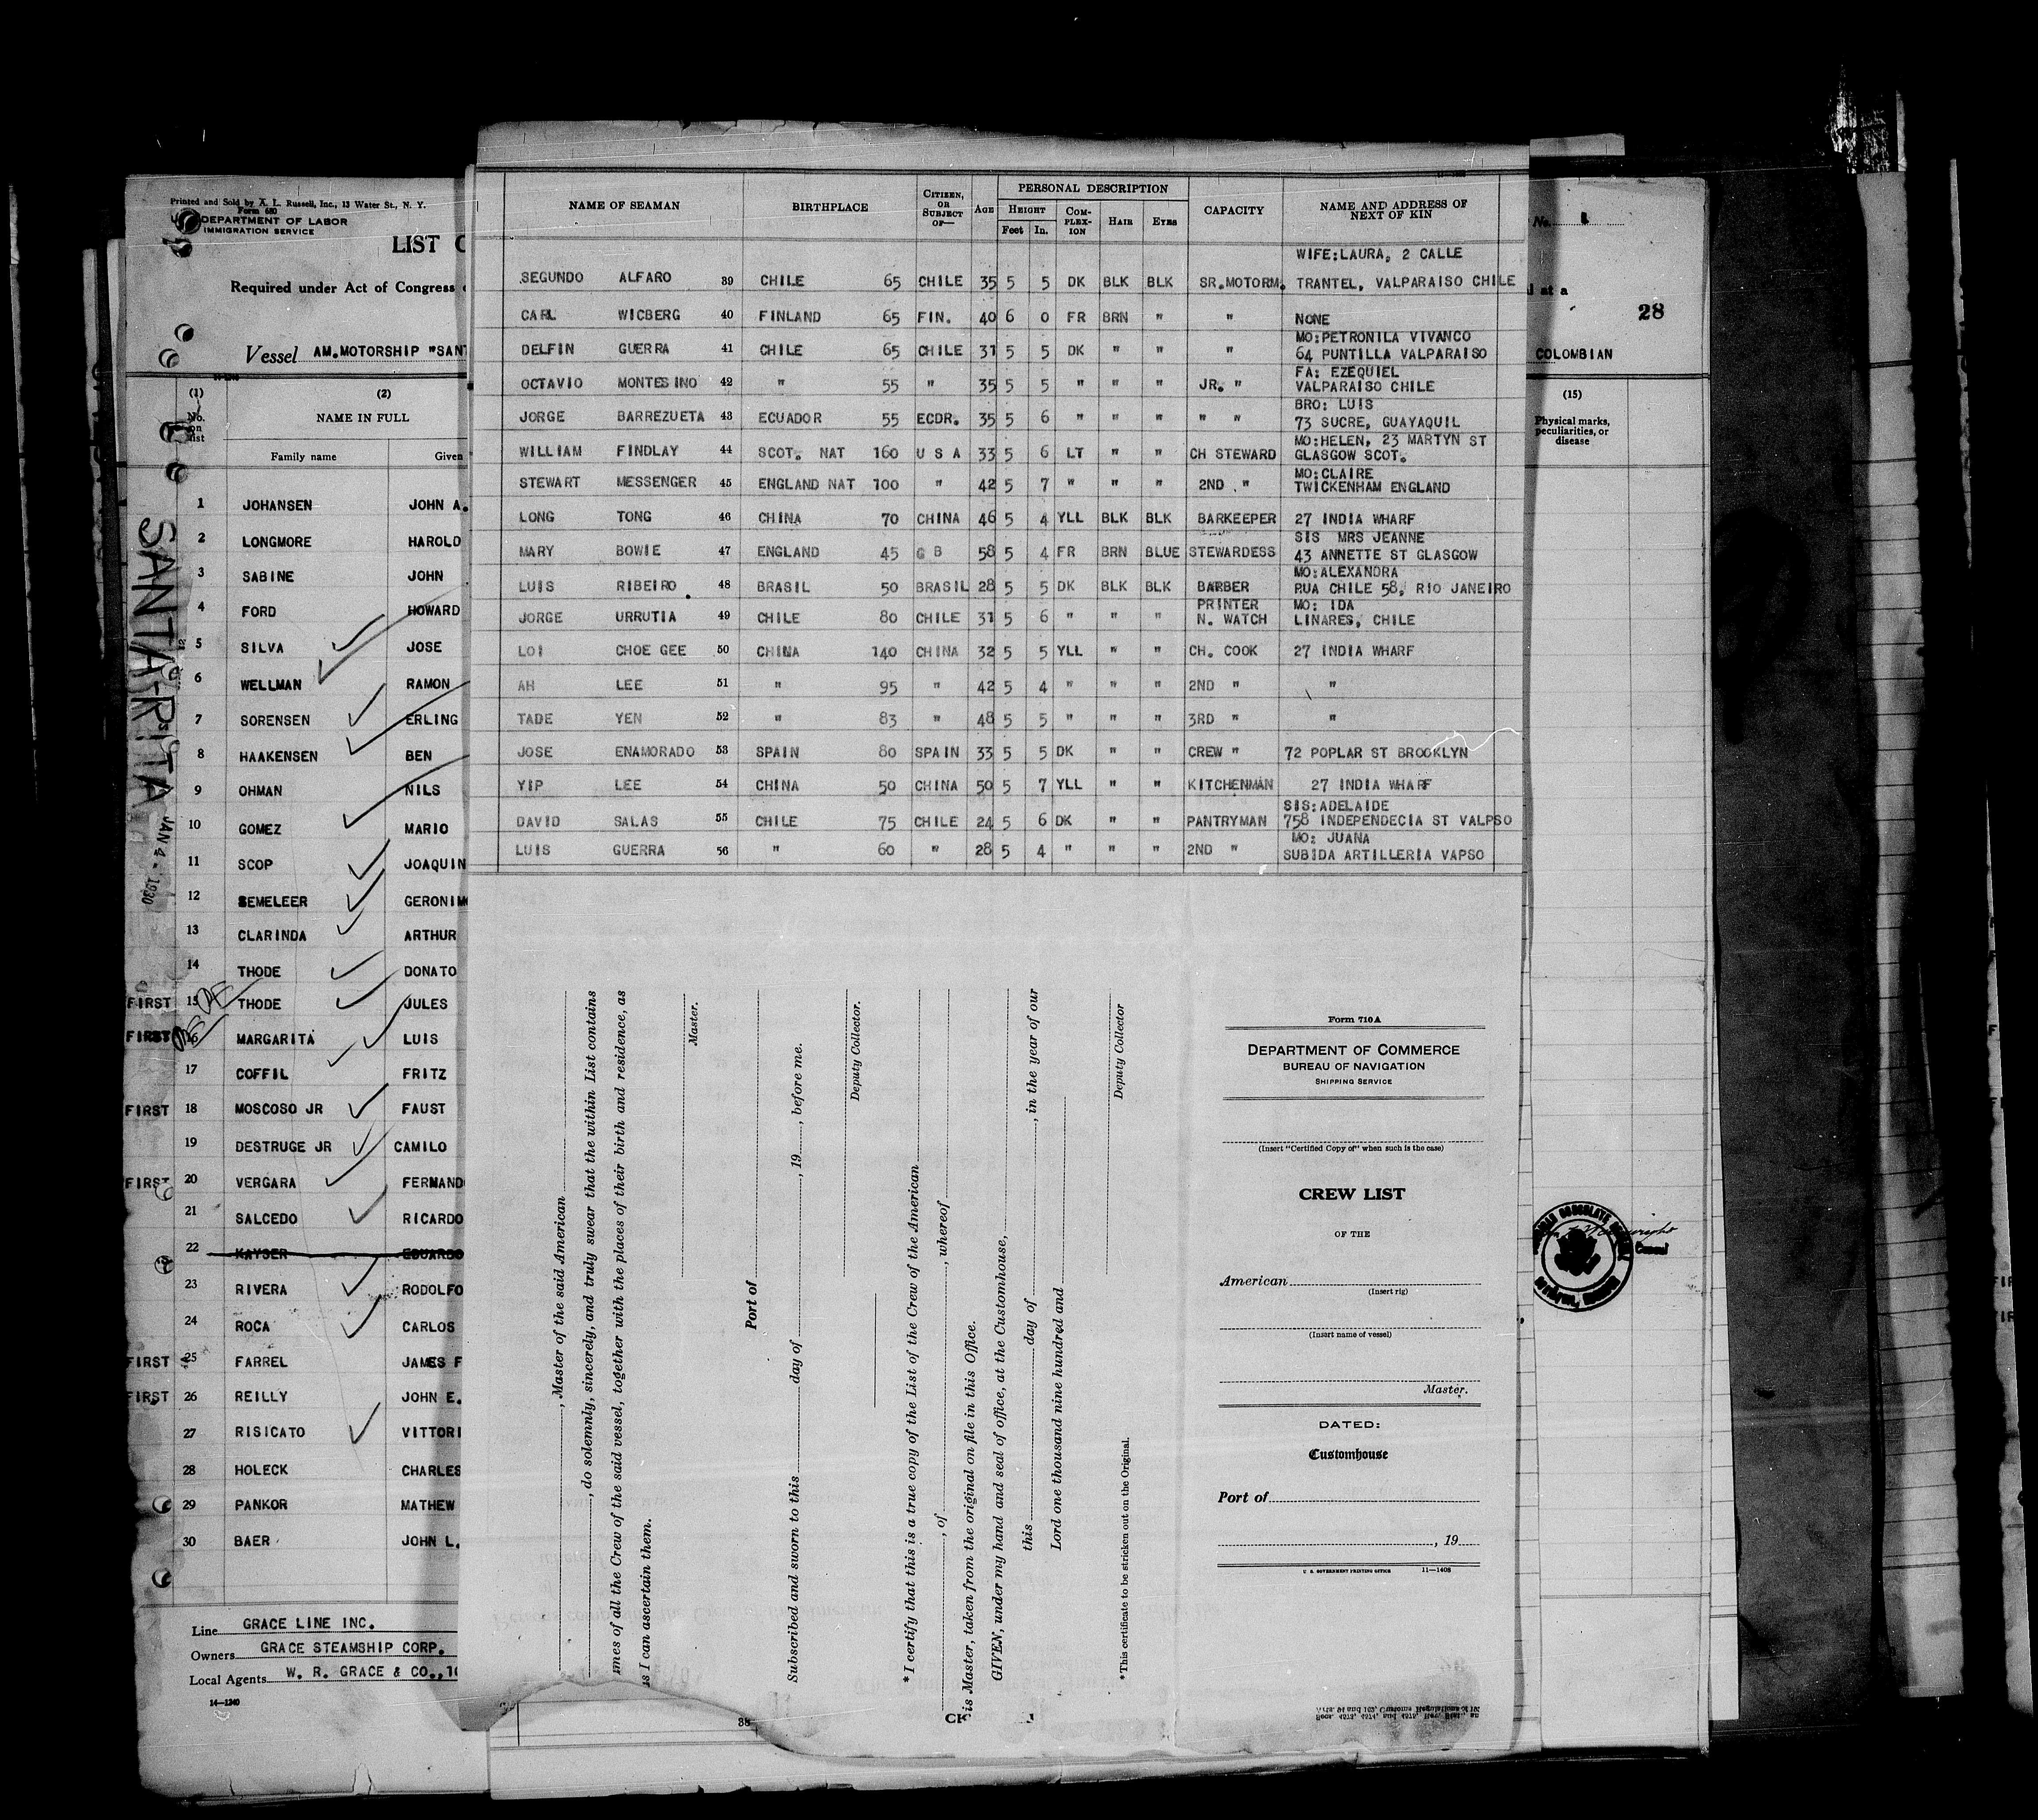 Printed and Sold by X. L. Russell, Inc., 13 Water St., N. Y.
Form 680
DEPARTMENT OF LABOR
IMMIGRATION SERVICE
LIST
Required under Act of Congress
Vessel AM.MOTORSHIP "SANT
(1) (2)
No. on list NAME IN FULL
Family name Given
1 JOHANSEN JOHN A.
2 LONGMORE HAROLD
3 SABINE JOHN
4 FORD HOWARD
5 SILVA JOSE
6 WELLMAN RAMON
7 SORENSEN ERLING
8 HAAKENSEN BEN
9 OHMAN NILS
10 GOMEZ MARIO
11 SCOP JOAQUIN
12 SEMELEER GERONIM
13 CLARINDA ARTHUR
14 THODE DONATO
FIRST 15 THODE JULES
FIRST 16 MARGARITA LUIS
17 COFFIL FRITZ
FIRST 18 MOSCOSO JR FAUST
19 DESTRUGE JR CAMILO
FIRST 20 VERGARA FERNAND
21 SALCEDO RICARDO
22 KAYSER EDUARDO
23 RIVERA RODOLFO
24 ROCA CARLOS
FIRST 25 FARREL JAMES F
FIRST 26 REILLY JOHN E.
27 RISICATO VITTORI
28 HOLECK CHARLES
29 PANKOR MATHEW
30 BAER JOHN L.
Line GRACE LINE INC.
Owners GRACE STEAMSHIP CORP.
Local Agents W. R. GRACE & CO., 10
14—1240
SANTA RITA
JAN 4 - 1930
NAME OF SEAMAN BIRTHPLACE CITIZEN, OR SUBJECT OF— AGE PERSONAL DESCRIPTION CAPACITY NAME AND ADDRESS OF NEXT OF KIN
HEIGHT COM-PLEX-ION HAIR EYES
Feet In.
WIFE:LAURA, 2 CALLE
SEGUNDO ALFARO 39 CHILE 65 CHILE 35 5 5 DK BLK BLK SR.MOTORM. TRANTEL, VALPARAISO CHILE
CARL WICBERG 40 FINLAND 65 FIN. 40 6 0 FR BRN " " NONE
MO:PETRONILA VIVANCO
DELFIN GUERRA 41 CHILE 65 CHILE 31 5 5 DK " " " 64 PUNTILLA VALPARAISO
FA: EZEQUIEL
OCTAVIO MONTESINO 42 " 55 " 35 5 5 " " " JR. " VALPARAISO CHILE
BRO: LUIS
JORGE BARREZUETA 43 ECUADOR 55 ECDR. 35 5 6 " " " " " 73 SUCRE, GUAYAQUIL
MO:HELEN, 23 MARTYN ST
WILLIAM FINDLAY 44 SCOT. NAT 160 U S A 33 5 6 LT " " CH STEWARD GLASGOW SCOT.
MO:CLAIRE
STEWART MESSENGER 45 ENGLAND NAT 100 " 42 5 7 " " " 2ND " TWICKENHAM ENGLAND
LONG TONG 46 CHINA 70 CHINA 46 5 4 YLL BLK BLK BARKEEPER 27 INDIA WHARF
SIS MRS JEANNE
MARY BOWIE 47 ENGLAND 45 G B 58 5 4 FR BRN BLUE STEWARDESS 43 ANNETTE ST GLASGOW
MO:ALEXANDRA
LUIS RIBEIRO 48 BRASIL 50 BRASIL 28 5 5 DK BLK BLK BARBER RUA CHILE 58, RIO JANEIRO
PRINTER MO: IDA
JORGE URRUTIA 49 CHILE 80 CHILE 31 5 6 " " " N. WATCH LINARES, CHILE
LOI CHOE GEE 50 CHINA 140 CHINA 32 5 5 YLL " " CH. COOK 27 INDIA WHARF
AH LEE 51 " 95 " 42 5 4 " " " 2ND " "
TADE YEN 52 " 83 " 48 5 5 " " " 3RD " "
JOSE ENAMORADO 53 SPAIN 80 SPAIN 33 5 5 DK " " CREW " 72 POPLAR ST BROOKLYN
YIP LEE 54 CHINA 50 CHINA 50 5 7 YLL " " KITCHENMAN 27 INDIA WHARF
SIS:ADELAIDE
DAVID SALAS 55 CHILE 75 CHILE 24 5 6 DK " " PANTRYMAN 758 INDEPENDECIA ST VALPSO
MO: JUANA
LUIS GUERRA 56 " 60 " 28 5 4 " " " 2ND " SUBIDA ARTILLERIA VAPSO
, Master of the said American
, do solemnly, sincerely, and truly swear that the within List contains
mes of all the Crew of the said vessel, together with the places of their birth and residence, as
as I can ascertain them.
Master.
Port of
Subscribed and sworn to this day of , 19 , before me.
Deputy Collector.
* I certify that this is a true copy of the List of the Crew of the American
, of , whereof
is Master, taken from the original on file in this Office.
GIVEN, under my hand and seal of office, at the Customhouse,
this day of , in the year of our
Lord one thousand nine hundred and
Deputy Collector
* This certificate to be stricken out on the Original.
Form 710A
DEPARTMENT OF COMMERCE
BUREAU OF NAVIGATION
SHIPPING SERVICE
(Insert "Certified Copy of" when such is the case)
CREW LIST
OF THE
American
(Insert rig)
(Insert name of vessel)
Master.
DATED:
Customhouse
Port of
, 19
U. S. GOVERNMENT PRINTING OFFICE 11—1408
38
No. 1
at a
28
COLOMBIAN
(15)
Physical marks, peculiarities, or disease
Consul